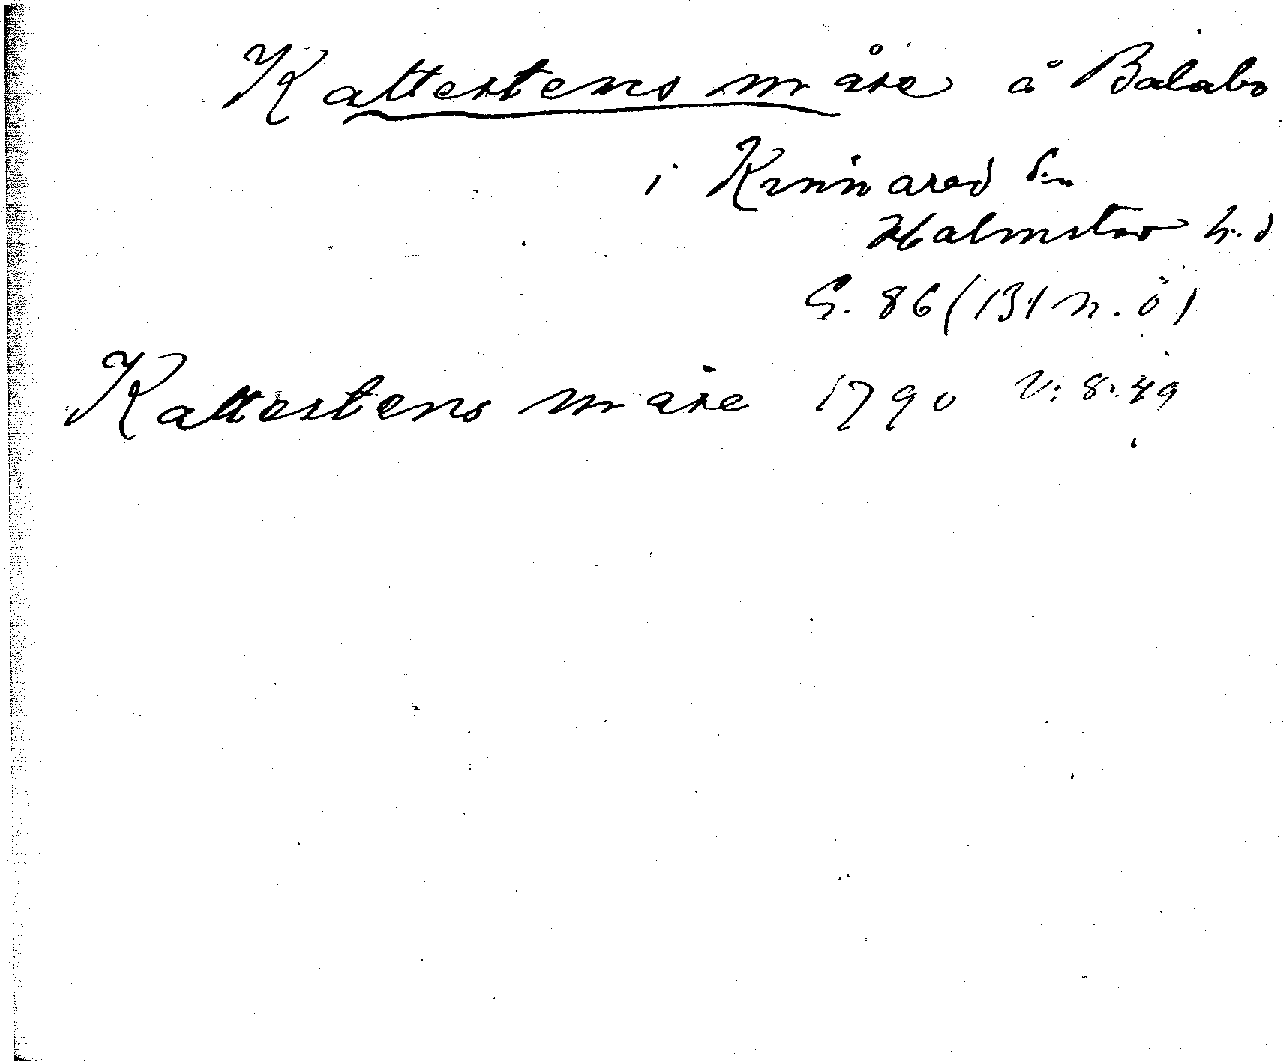 Kattestens måse å Balabo
i Kinnared sn
Halmstad h.d
G. 86 (131 n. ö)
Kattestens måse 1790 V: 8: 49